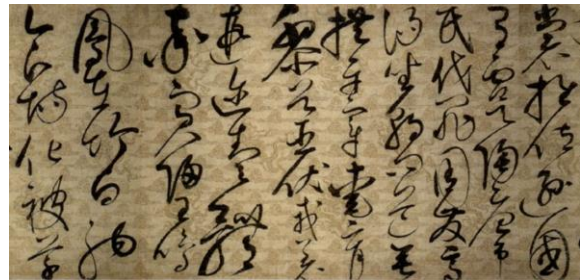 裳推位遜國
有虞陶唐弔
民伐罪周發商
湯坐朝問道垂
拱平章愛育
黎首臣伏戎羌
遐邇壹體
率賓歸王鳴
鳳在竹白駒
食場化被草